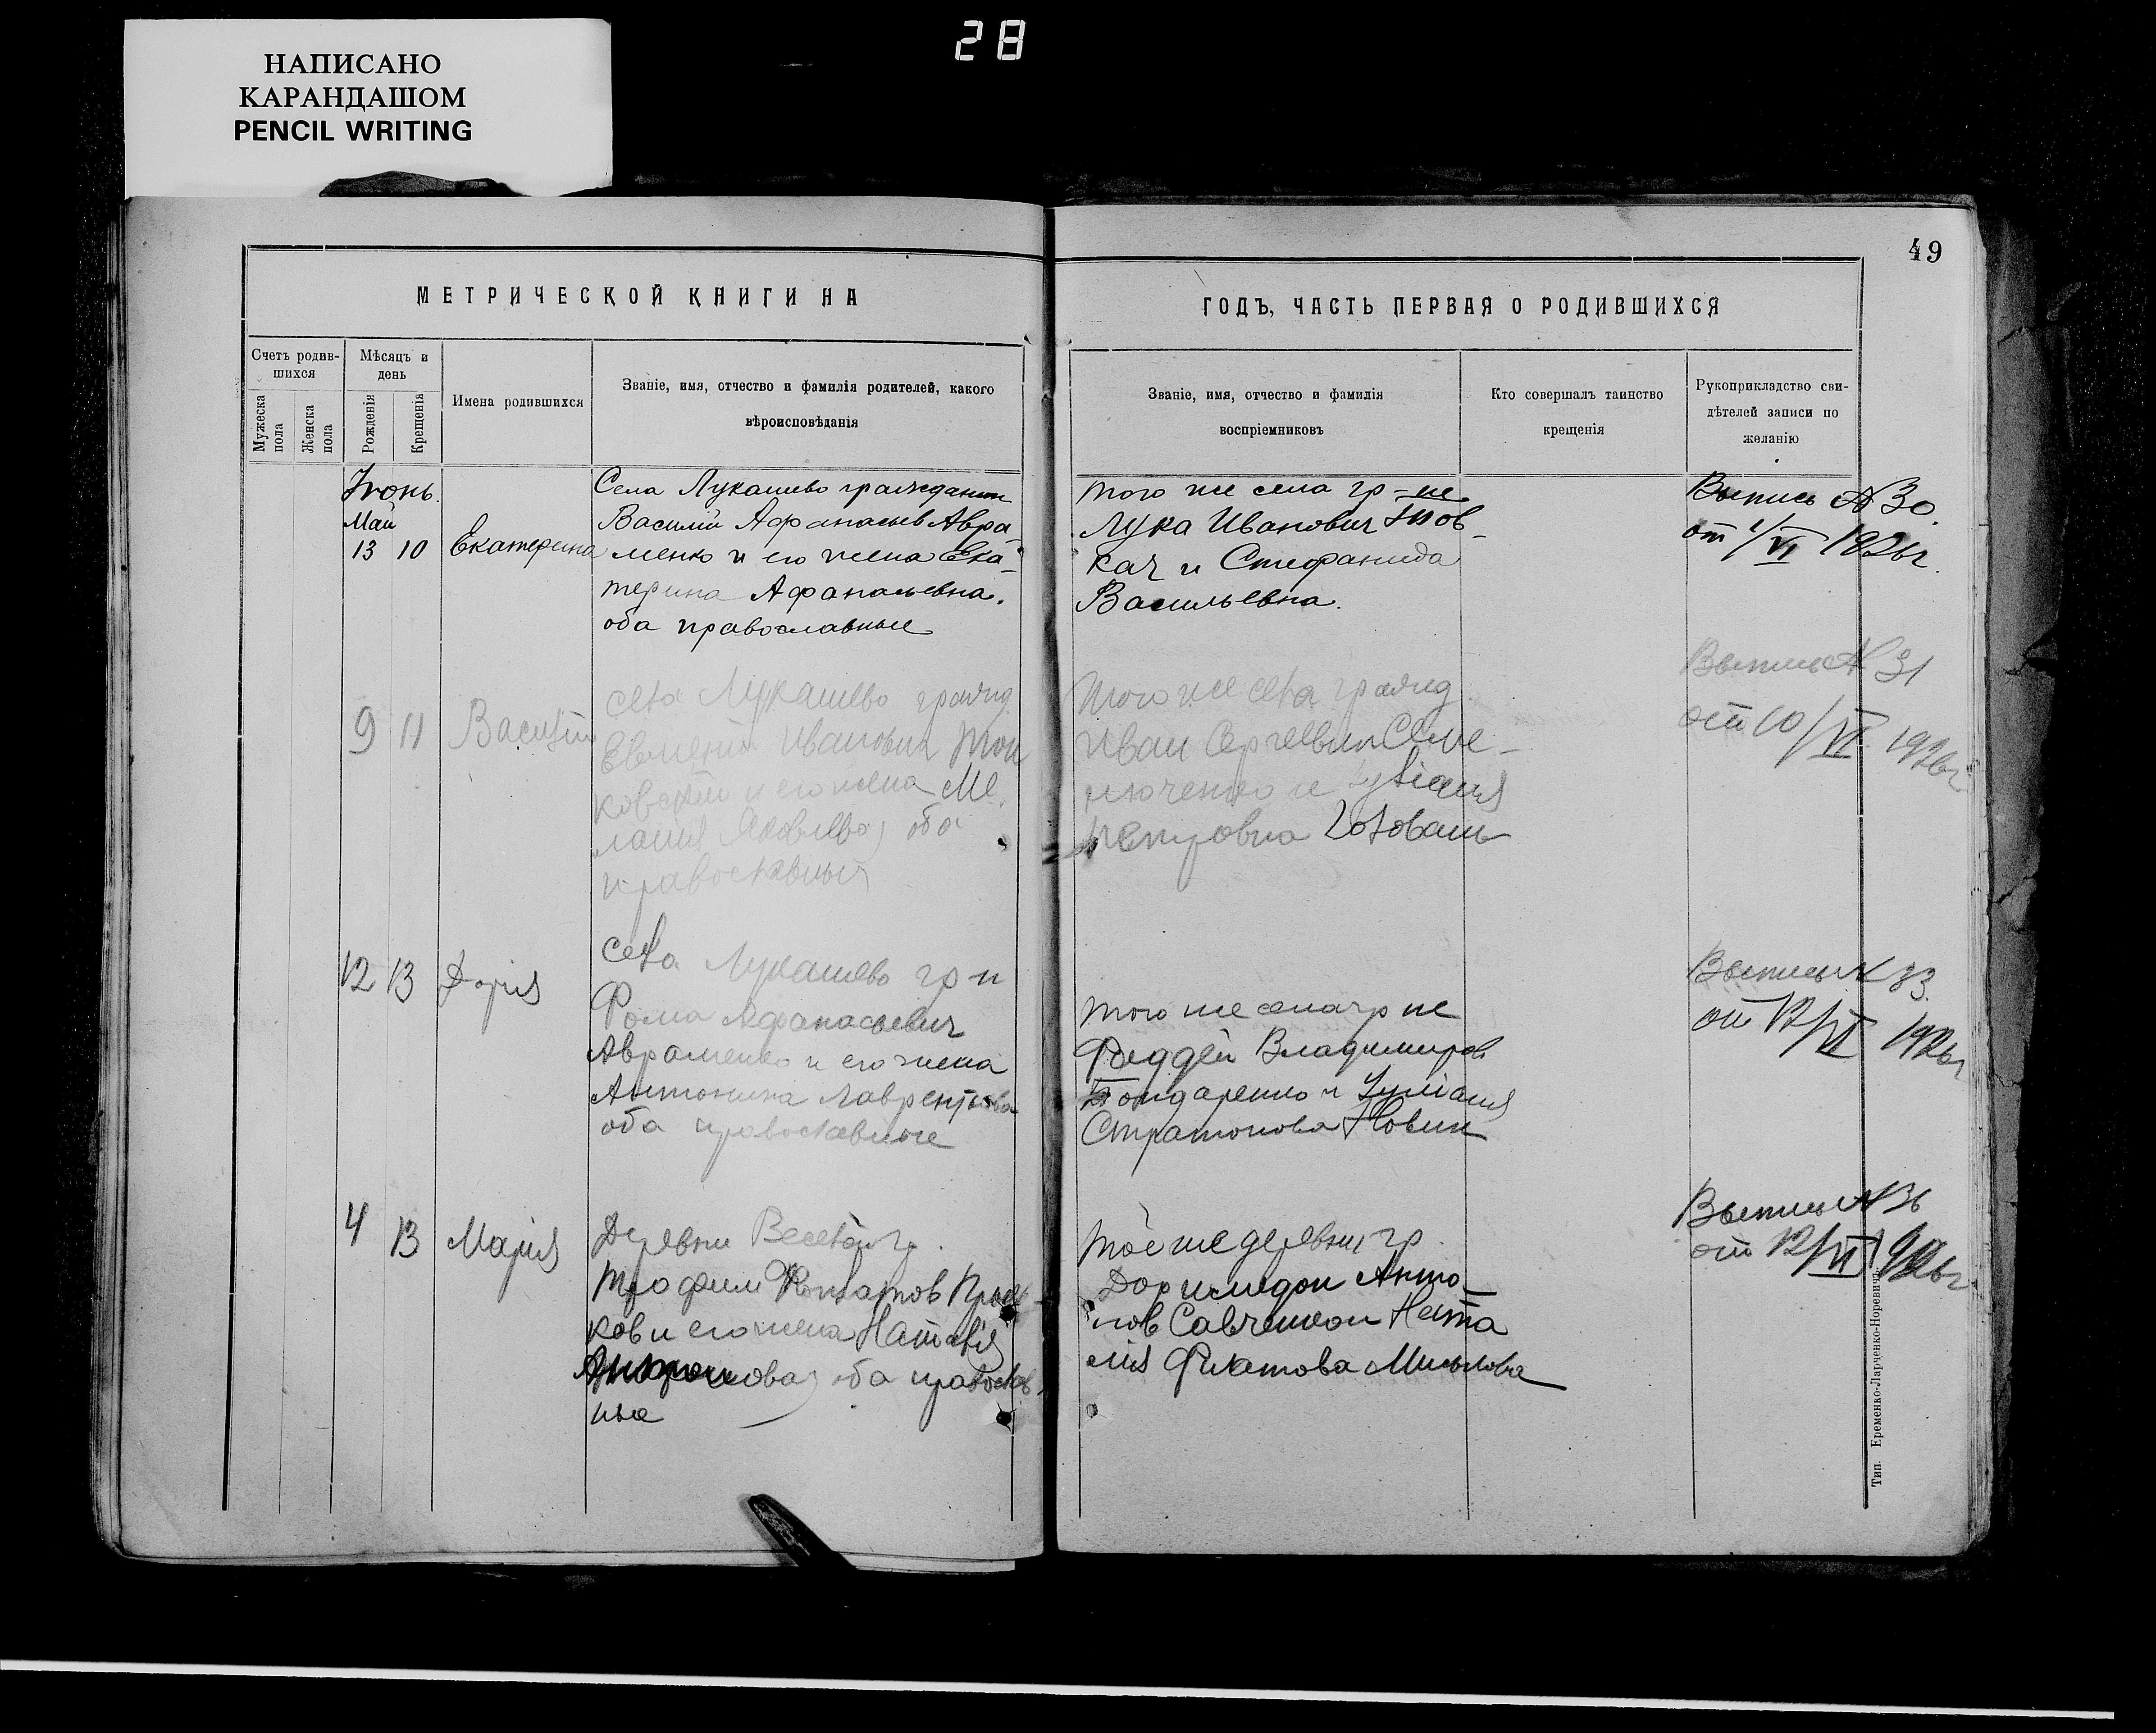 28
НАПИСАНО
КАРАНДАШОМ
PENCIL WRITING
49
МЕТРИЧЕСКОЙ КНИГИ НА
ГОДЪ, ЧАСТЬ ПЕРВАЯ О РОДИВШИХСЯ
Счетъ родив-
шихся
Мѣсяцъ и
день
Мужеска
пола
Женска
пола
Рожденія
Крещенія
Имена родившихся
Званіе, имя, отчество и фамилія родителей, какого
вѣроисповѣданія
Званіе, имя, отчество и фамилія
воспріемниковъ
Кто совершалъ таинство
крещенія
Рукоприкладство сви-
дѣтелей записи по
желанію
Июнь.
Май
13 10 Екатерина
Села Лукашево гражданин
Василий Афанасьев Авра-
менко и его жена Ека-
терина Афанасьевна.
оба православные
того же села гр-не
Лука Иванович
кач и Стефанида
Васильевна.
Выпись № 30.
от 1/VI 1926г.
9 11 Василий
села Лукашево гражд
Евмений Иванович
и его жена Ме-
лания Яковлева, оба
православныя
Того же села гражд
Иван Сергеевич Семе-
нюченко и Іуліания
Петровна
Выпись № 31
от 10/VI 1926г.
12 13 Дарія
села Лукашево гр-н
Фома Афанасьевич
Авраменко и его жена
Антонина Лаврентьева
оба православные
того же села гр не
Фаддей Владимиров
Бондаренко и Іуліания
Стратонова Новик
Выпись № 33.
от 12/VI 1926г
4 13 Марія
Деревни Веселой гр.
Трофим
ков и его жена Наталія
оба православ-
ные
Тоё же деревни гр.
Доримедон Анто-
нов Савченко и Ната
лія Филатова
Выпись № 36
от 12/VI 1926г
Тип. Еременко-Ларченко-Норевичъ.